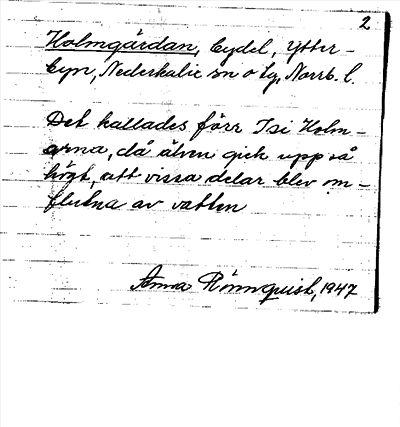 2
Holmgårdan, bydel, Ytter-
byn, Nederkalix sn o tg, Norrb. l.
Det kallades förr I si Holm-
arna, då älven gick upp så
högt, att vissa delar blev om-
flutna av vatten
Anna Rönnquist, 1947